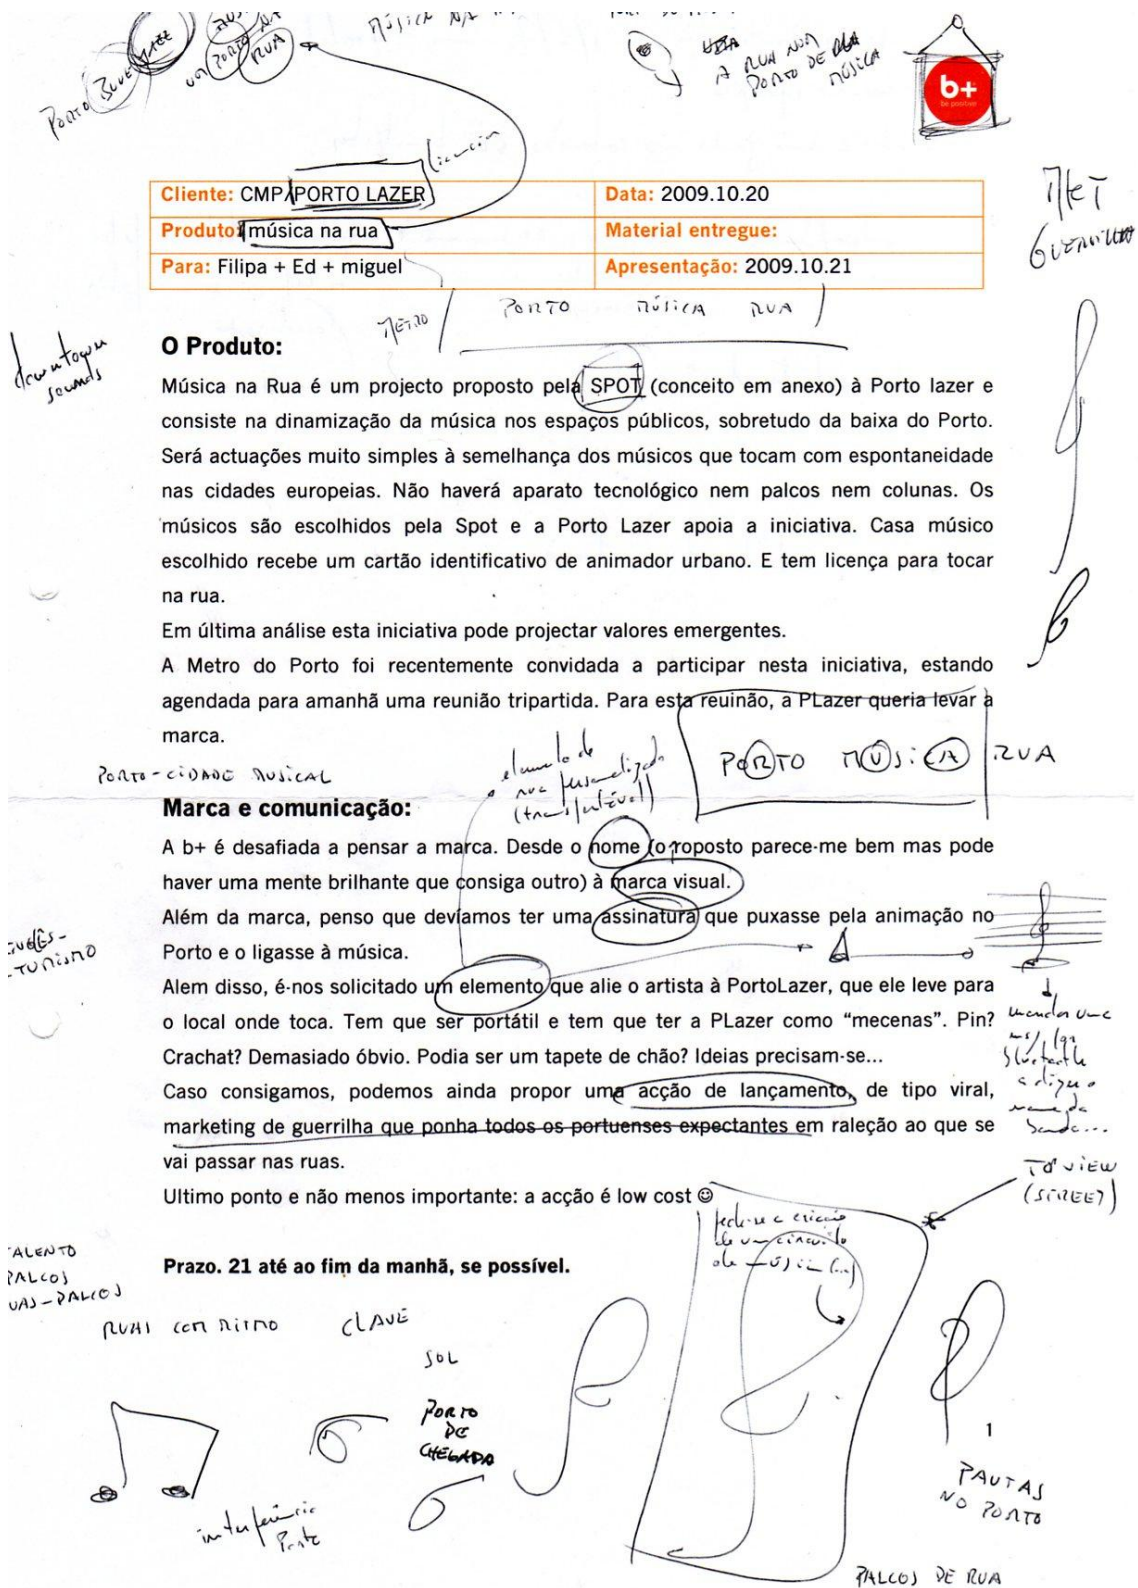 MÚSICA NA
PORTO BLUE
PORTO NA
RUA
A RUA NUM
PORTO DE
MÚSICA
b+
be positive
Cliente: CMP/PORTO LAZER
Data: 2009.10.20
Produto: música na rua
Material entregue:
Para: Filipa + Ed + miguel
Apresentação: 2009.10.21
MKT
GUERRILHA
METRO
PORTO MÚSICA RUA
downtown
sounds
O Produto:
Música na Rua é um projecto proposto pela SPOT (conceito em anexo) à Porto lazer e
consiste na dinamização da música nos espaços públicos, sobretudo da baixa do Porto.
Será actuações muito simples à semelhança dos músicos que tocam com espontaneidade
nas cidades europeias. Não haverá aparato tecnológico nem palcos nem colunas. Os
músicos são escolhidos pela Spot e a Porto Lazer apoia a iniciativa. Casa músico
escolhido recebe um cartão identificativo de animador urbano. E tem licença para tocar
na rua.
Em última análise esta iniciativa pode projectar valores emergentes.
A Metro do Porto foi recentemente convidada a participar nesta iniciativa, estando
agendada para amanhã uma reunião tripartida. Para esta reuinão, a PLazer queria levar a
marca.
PORTO MÚSICA RUA
elemento de
rua personalizado
(transportável)
PORTO-CIDADE MUSICAL
Marca e comunicação:
A b+ é desafiada a pensar a marca. Desde o nome (o proposto parece-me bem mas pode
haver uma mente brilhante que consiga outro) à marca visual.
Além da marca, penso que devíamos ter uma assinatura que puxasse pela animação no
Porto e o ligasse à música.
Alem disso, é-nos solicitado um elemento que alie o artista à PortoLazer, que ele leve para
o local onde toca. Tem que ser portátil e tem que ter a PLazer como “mecenas”. Pin?
Crachat? Demasiado óbvio. Podia ser um tapete de chão? Ideias precisam-se...
Caso consigamos, podemos ainda propor uma acção de lançamento, de tipo viral,
marketing de guerrilha que ponha todos os portuenses expectantes em raleção ao que se
vai passar nas ruas.
Ultimo ponto e não menos importante: a acção é low cost ☺
mandar uma
bluetooth
a dizer o
nome da
banda...
TOP VIEW
(STREET)
pede-se a criação
de um circuito
de música
Prazo. 21 até ao fim da manhã, se possível.
TURISMO
TALENTO
PALCOS
RUAS-PALCOS
RUAS COM RITMO
CLAVE
SOL
PORTO
DE
CHEGADA
interferência
Porto
1
PAUTAS
NO PORTO
PALCOS DE RUA